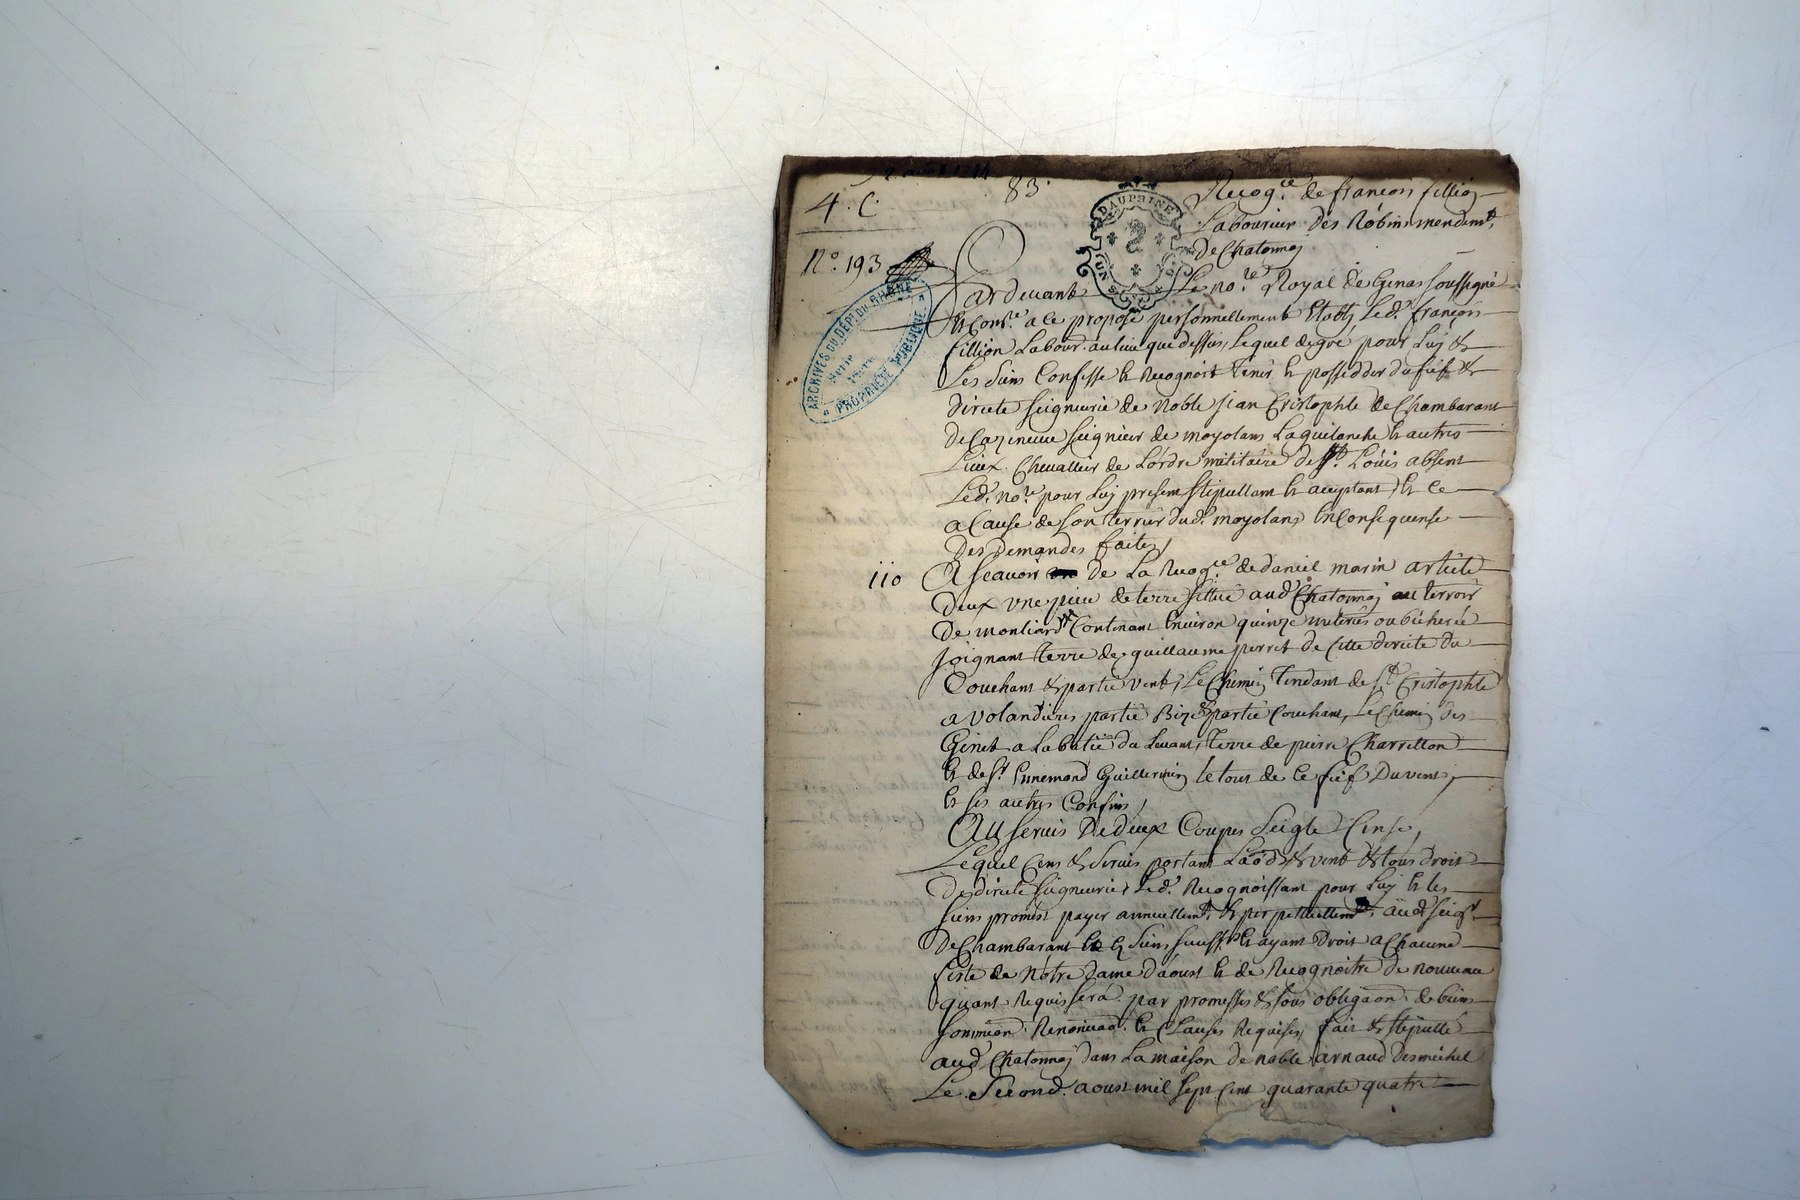 2 aoust 1744
4. C.
83.
Recog.ce de françois fillion
Labourieur des Robins mendem.t
De Chatonnay
N.o 193
DAUPHINE
UN S
ARCHIVES DU DEP.T DU RHÔNE
PROPRIÉTÉ PUBLIQUE
Pardevant Le no.re Royal de Genas soussigné
& Com.re a ce proposé personnellement Etably Led. françois
fillion Labour. au lieu que dessus, Lequel de gré pour Luy &
Les siens Confesse & Recognoit tenir & possedder du fief &
directe seigneurie de Noble jean Cristophle de Chambarant
De Cazeneuve seigneur de moyolans Laquilonche & autres
Lieux. Chevallier de Lordre militaire de S.t Louis absent
Led. no.re pour Luy present stipullant & acceptant, & ce
a Cause de son terrier dud. moyolans En Consequense
Des Demandes faites,
110 A scavoir de La Recog.ce de daniel marin article
Deux une piece de terre sittué aud. Chatonnay au terroir
De montiard Contenant Environ quinze meterés ou bicherée
Joignant terre de guillaume perret de Cette directe du
Couchant & partie vent, Le Chemin Tendant de S.t Cristophle
a Volandieres partie Bize & partie Couchant, Le Chemin des
Ginet a La batie du Levant, Terre de pierre Charreton
& de S.r Ennemond Guillermin le tout de Ce fief Du vent,
& ses autres Confins,
Au servis De deux Coupes Seigle Cense,
Lequel Cens & Servis portant Laod & vent & tous droit
De directe seigneurie, Led. Recognoissant pour Luy & les
siens promest payer annuellem.t & perpetuellem.t aud. seig.r
De Chambarant & siens succ.rs & ayant Droit a Chacune
feste de Nótre dame daoust & de Recognoitre de nouveau
quant Requis sera par promesses & sous obligaon. de biens
soumion. Renonciaon. & Clauses Requises, fait & stipullé
aud. Chatonnay dans La maison de noble arnaud Desmichel
Le Second. aoust mil sept Cent quarante quatre